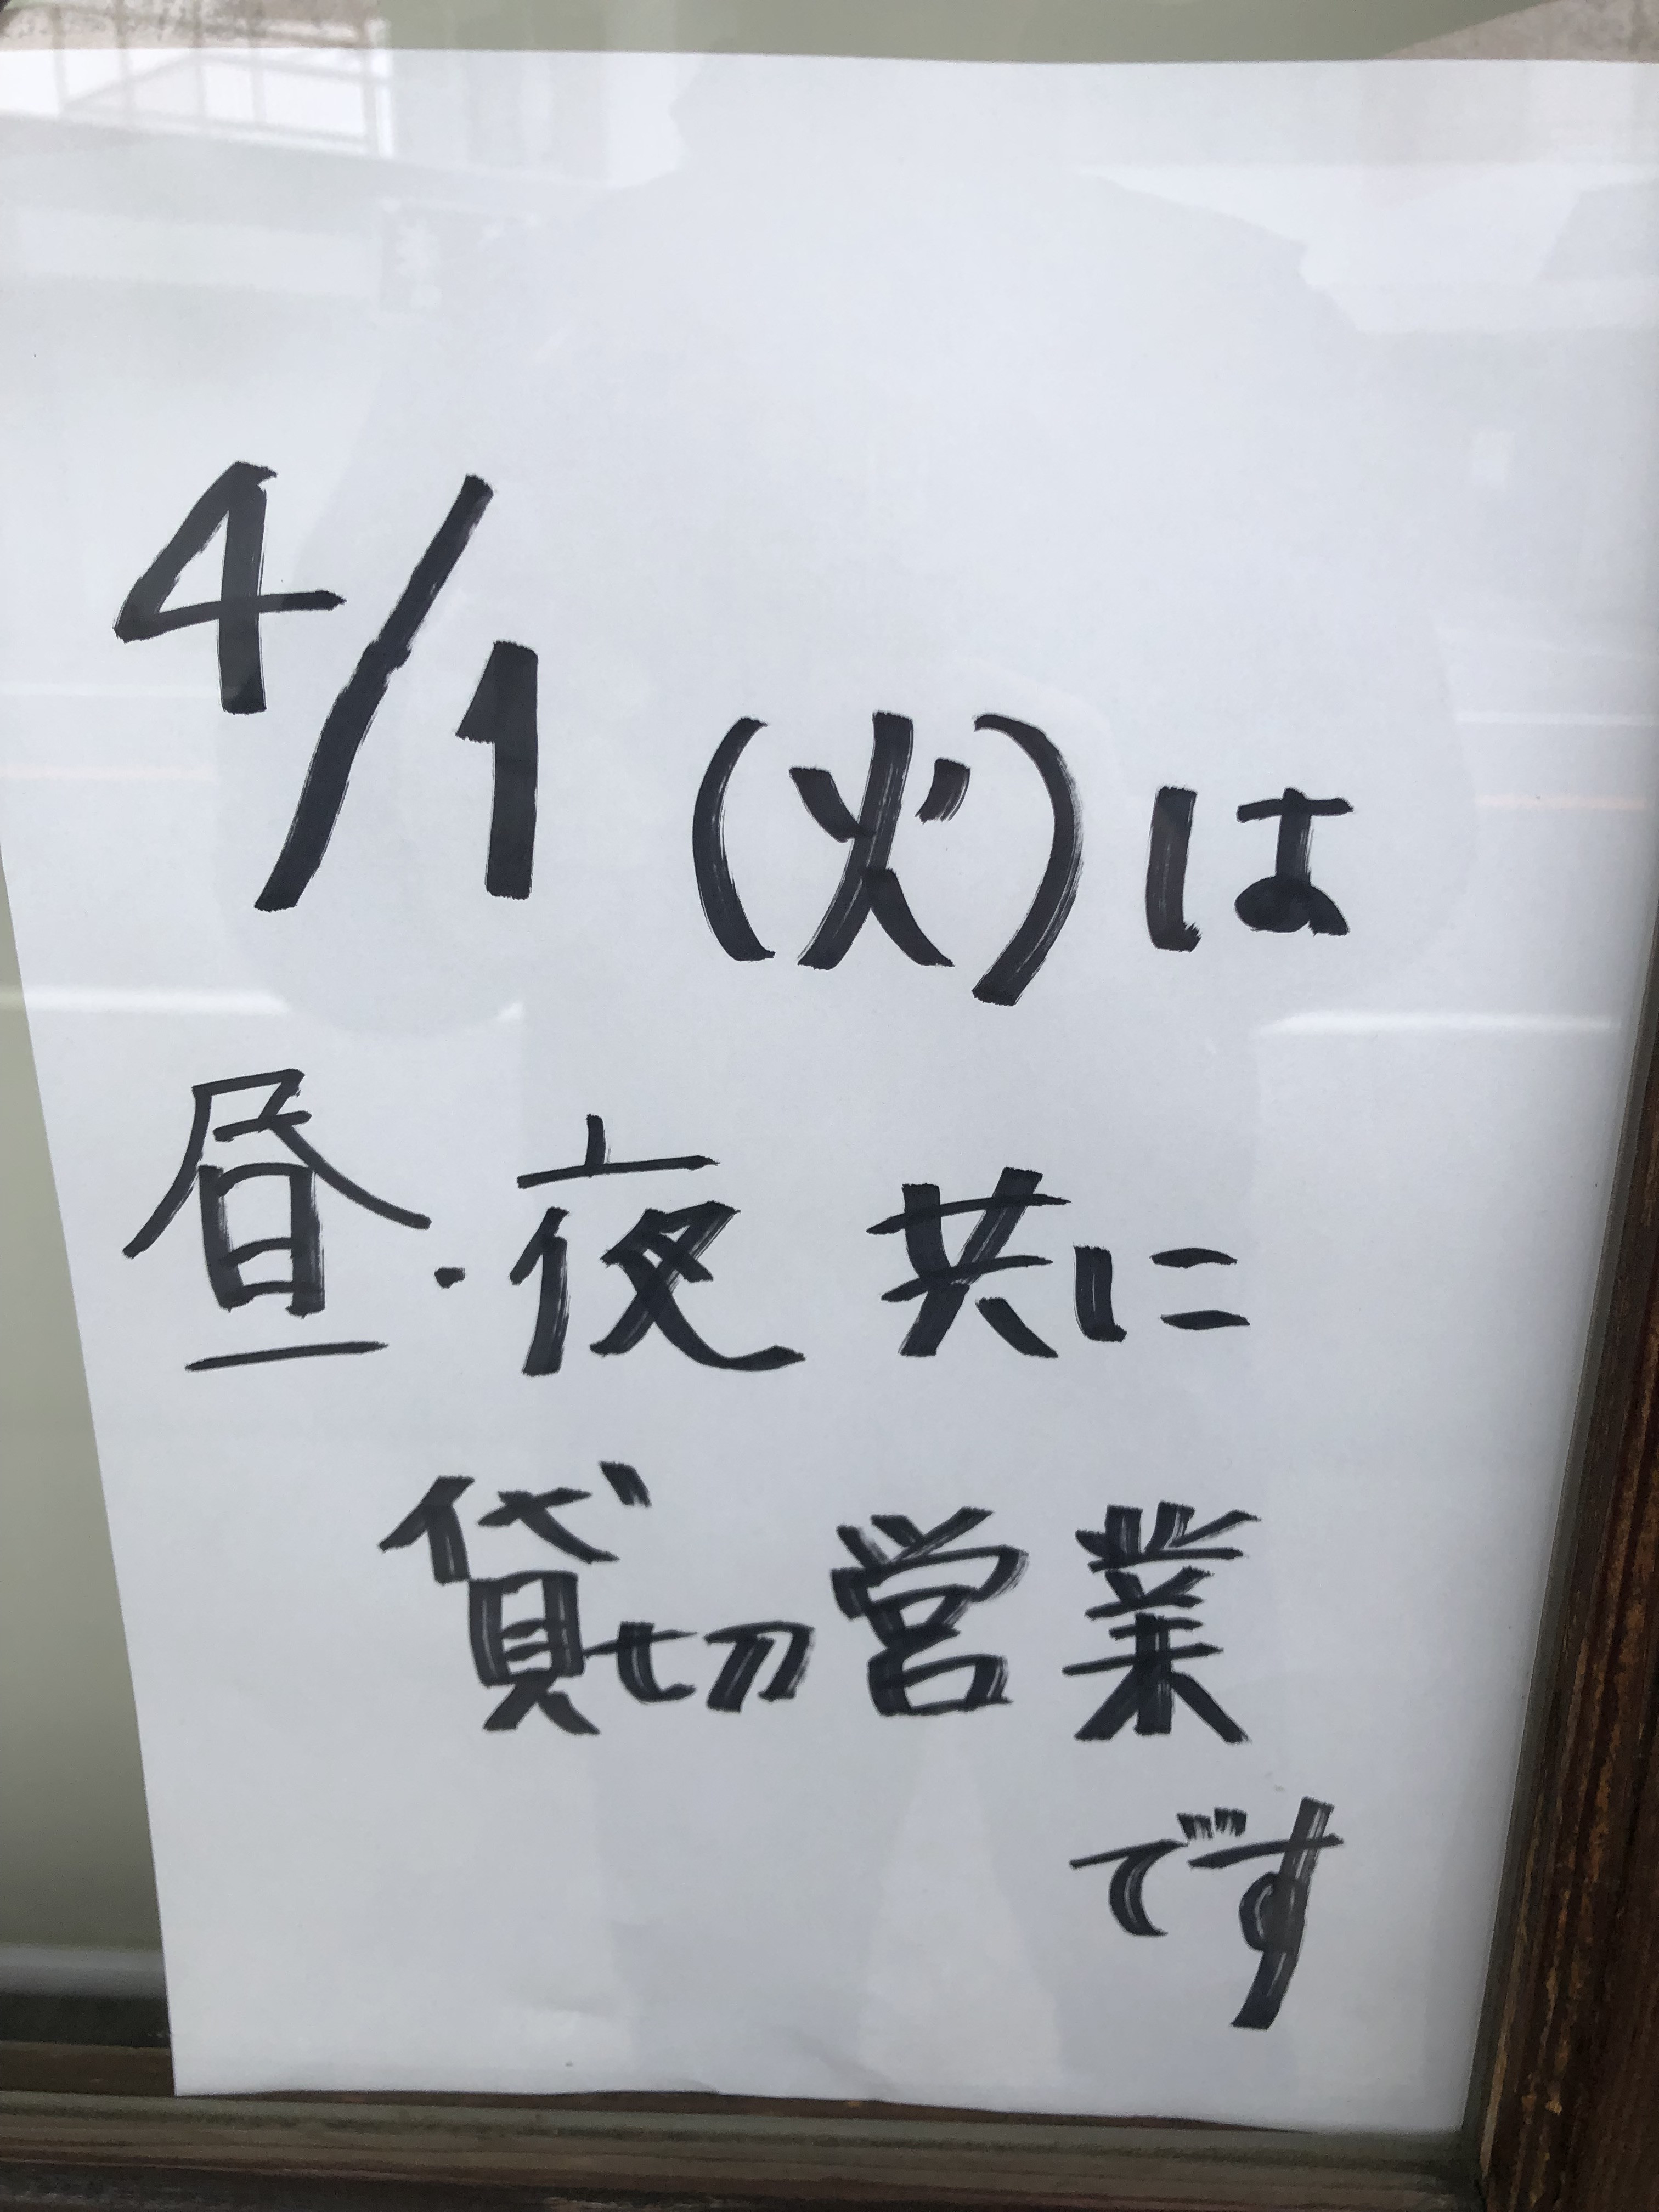 4/1 (火)は
昼・夜 共に
貸切営業
です